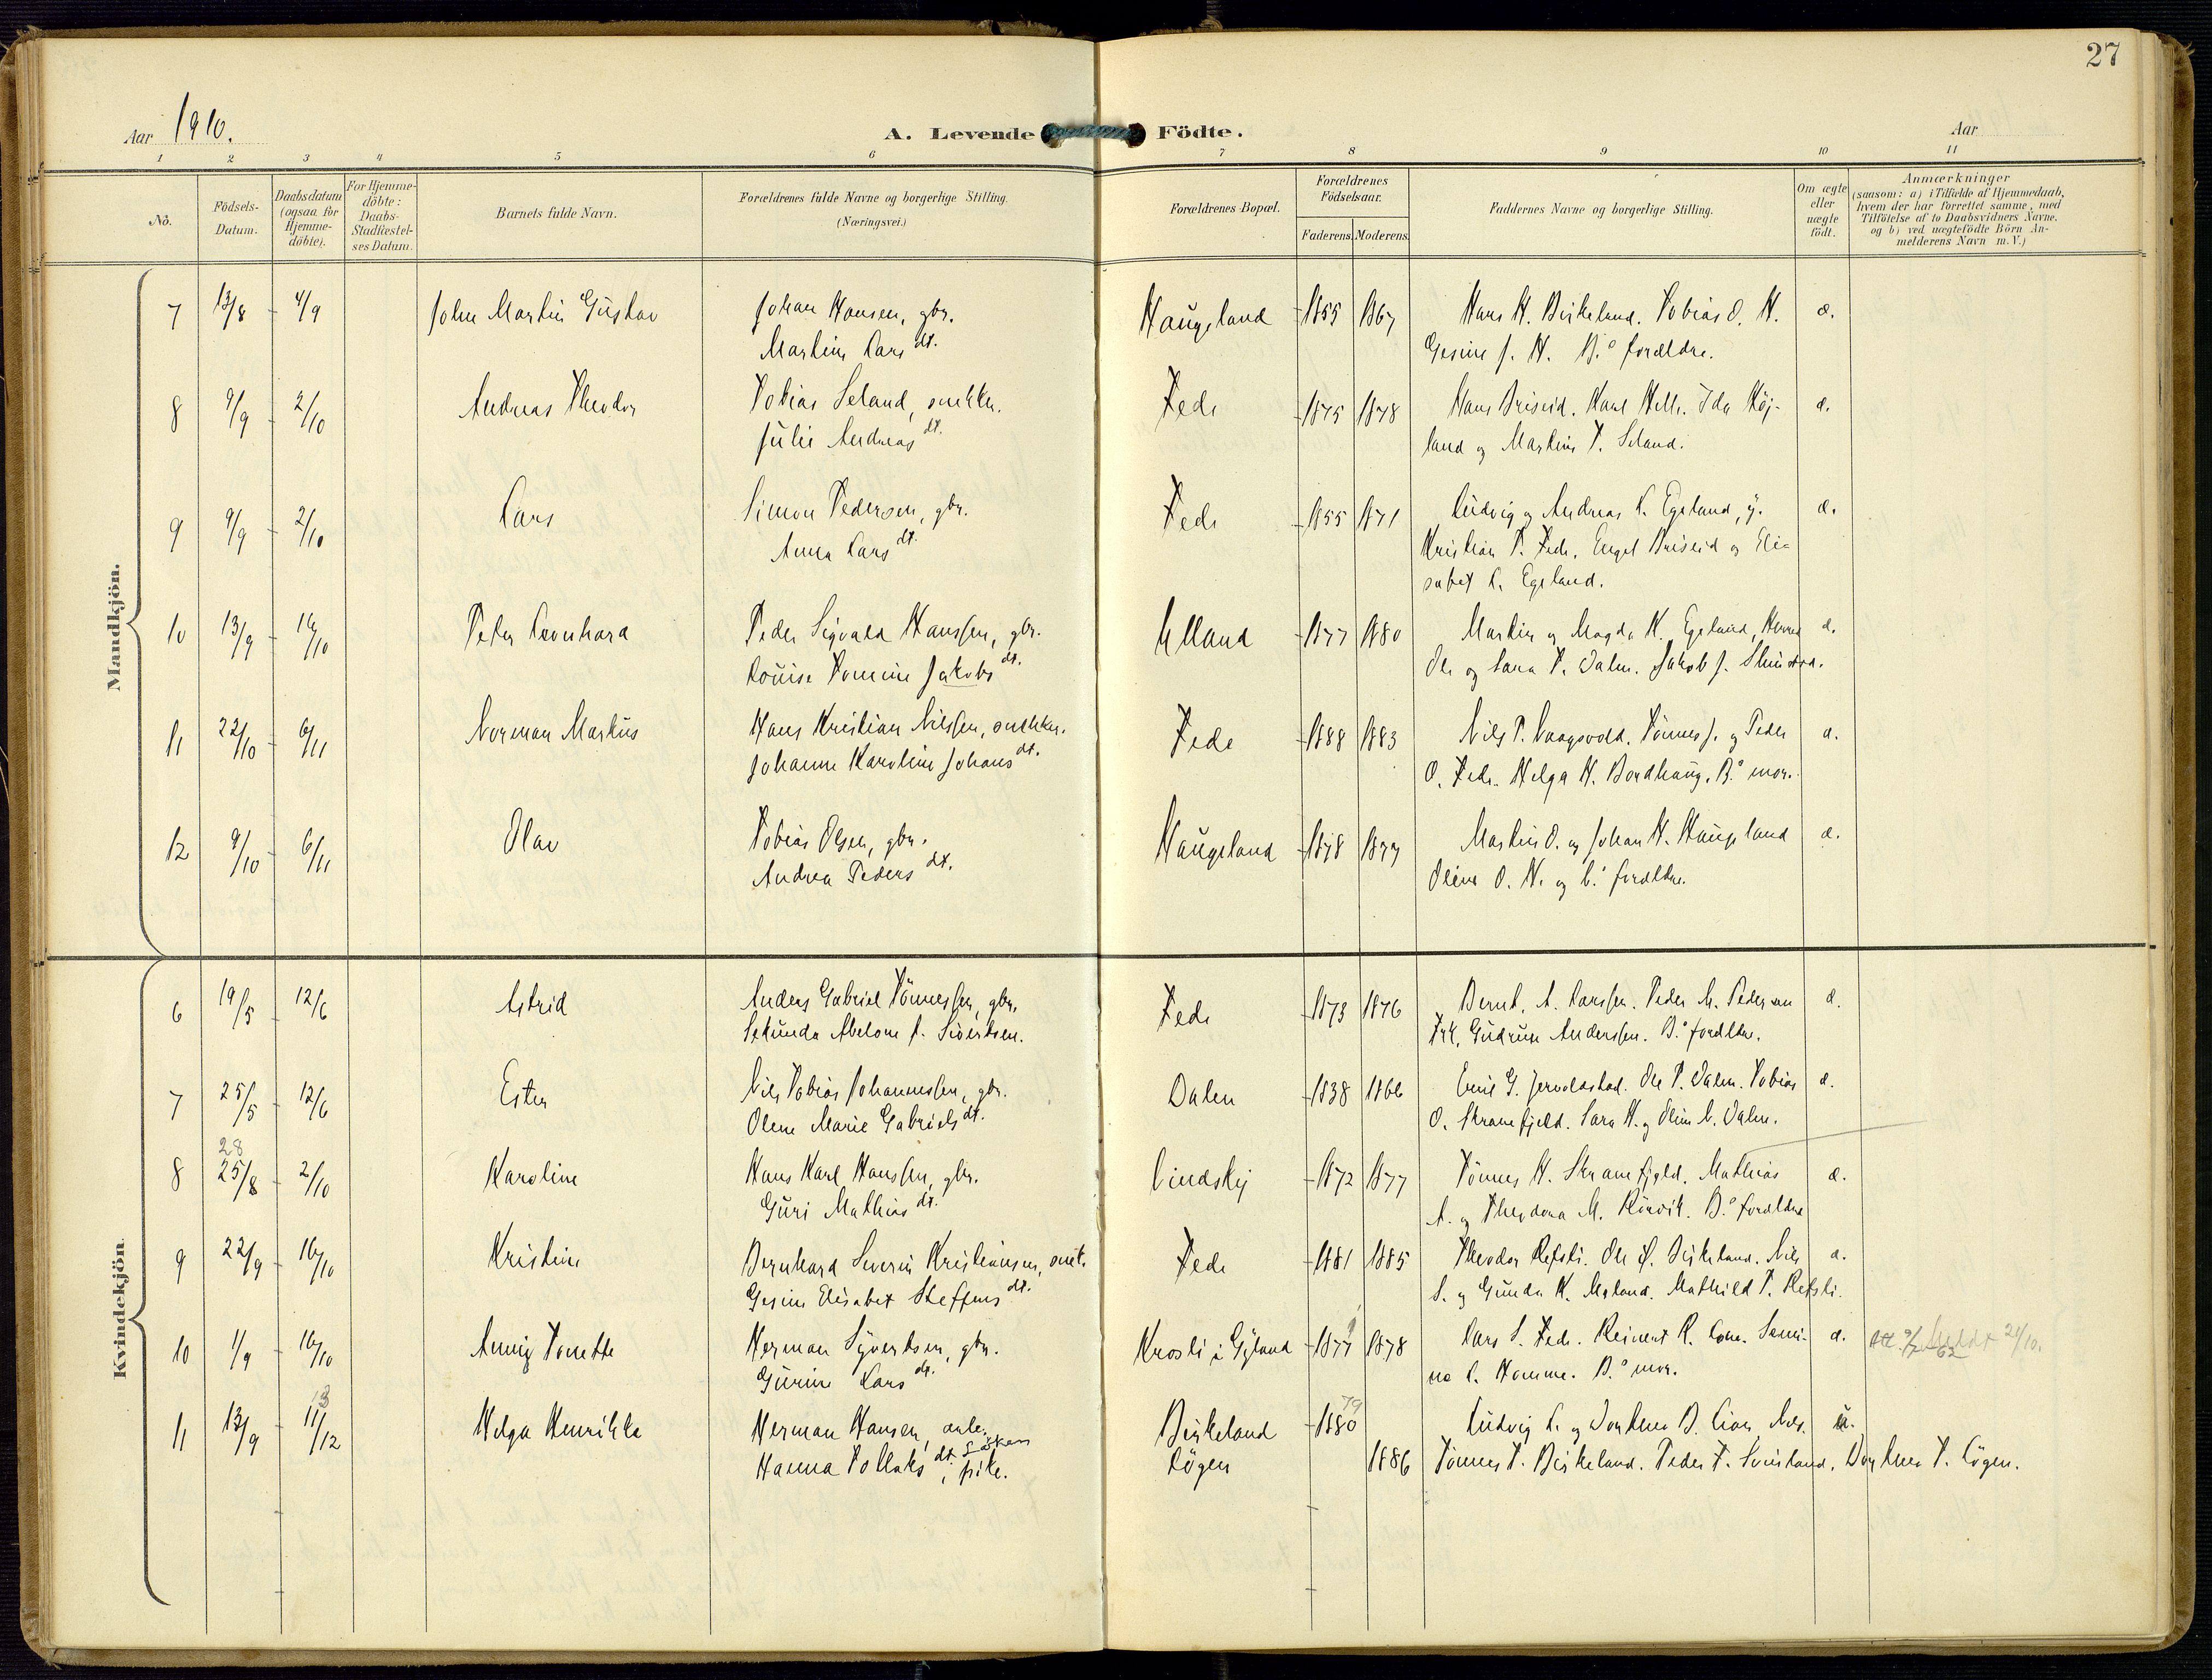 27
Aar 1910.
A. Levende Födte.
Aar
1 2 3 4 5 6 7 8 9 10 11
Nö.
Födsels-Datum.
Daabsdatum (ogsaa for Hjemme-döbte).
For Hjemme-döbte: Daabs-Stadfæstel-ses Datum.
Barnets fulde Navn.
Forældrenes fulde Navne og borgerlige Stilling. (Næringsvei.)
Forældrenes Bopæl.
Forældrenes Födselsaar.
Faderens. Moderens.
Faddernes Navne og borgerlige Stilling.
Om ægte eller uægte födt.
Anmærkninger (saasom: a) i Tilfælde af Hjemmedaab, hvem der har forrettet samme, med Tilföielse af to Daabsvidners Navne. og b) ved uægtefödte Börn An-melderens Navn m.V.)
Mandkjön.
7 13/8 4/9 John Martin Gustav Johan Hansen, gbr. Haugeland 1855 1867 Hans H. Birkeland. Tobias O. H. æ.
Martine Lars dt. Gesine J. H. B.° forældre.
8 9/9 2/10 Andreas Theodor Tobias Seland, snekker. Fede 1875 1878 Hans Briseid. Karl Ida Höj- æ.
Julie Andreas dt. land og Martin T. Seland.
9 9/9 2/10 Lars Simon Pedersen, gbr. Fede 1855 1871 Ludvig og Andreas L. Egeland, g. æ.
Anna Lars dt. Kristian P. Fede. Engel Briseid og Eli-
sabet L. Egeland.
10 13/9 16/10 Peter Leonhard Peder Sigvald Hanssen, gbr. Ulland 1877 1880 Martin og Magda H. Egeland, æ.
Louise Tomine Jakobs dt. Ole og Sara T. Dalen. Jakob J.
11 22/10 6/11 Norman Markus Hans Kristian Nilssen, snekker. Fede 1888 1883 Nils T. Vaagsvold. Tönnes J. og Peder æ.
Johanne Karoline Johans dt. O. Fede. Helga H. Bordhaug. B.° mor.
12 9/10 6/11 Olav Tobias Olsen, gbr. Haugeland 1878 1877 Martin O. og Johan H. Haugeland æ.
Andrea Peders dt. Oline O. H. og b.° forældre.
Kvindekjön.
6 19/5 12/6 Astrid Anders Gabriel Tönnessen, gbr. Fede 1873 1876 Bernt. A. Larssen. Peder M. Pedersen æ.
Sekunda Abelone f. Sivertsen. Frk. Gudrun Anderssen. B.° forældre.
7 25/5 12/6 Ester Nils Tobias Johannessen, gbr. Dalen 1838 1866 Emil G. Jerrolastad. Ole T. Dalen. Tobias æ.
Olene Marie Gabriels dt. O. Skranefjeld. Sara H. og Oline N. Dalen.
28
8 25/8 2/10 Karoline Hans Karl Hanssen, gbr. Lindskej 1872 1877 Tönnes H. Skranefjeld. Mathias æ.
Guri Mathias dt. A. og Theodora M. Rörvik. B.° forældre
9 22/9 16/10 Kristine Bernhard Severin Kristiansen, snek. Fede 1881 1885 Theodor Refsti. Ole Birkeland. Nils æ.
Gesine Elisabet Steffens dt. S. og Gunda K. Meland. Mathild T. Refsti.
10 1/9 16/10 Annig Tonette Herman Syvertsen, gbr. Krosli i Gyland 1877 1878 Lars S. Fede. Reinert R. Samu- æ. 24/10.
Gurine Lars dt. na L. Homme. B.° mor.
13 79
11 13/9 11/12 Helga Henrikke Herman Hansen, Birkeland 1880 Ludvig L. og Dorthea B. u.
Hanna Tollaks dt., pike. Lögen 1886 Tönnes T. Birkeland. Peder F. Sviland. Dorthea T. Lögen.